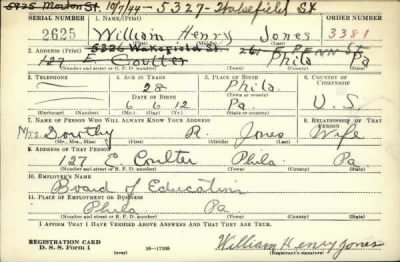 5925 Morton St. 10/7/44 - 5327 - Wakefield St
SERIAL NUMBER 1. NAME (Print) ORDER NUMBER
2625 William Henry Jones 3381
(First) (Middle) (Last)
5326 Wakefield St. 261 E PENN ST.
2. ADDRESS (Print)
127 E. Coulter Phila Pa
(Number and street or R. F. D. number) (Town) (County) (State)
3. TELEPHONE 4. AGE IN YEARS 5. PLACE OF BIRTH 6. COUNTRY OF CITIZENSHIP
28 Phila.
DATE OF BIRTH (Town or county)
6 6 12 Pa. U. S.
(Exchange) (Number) (Mo.) (Day) (Yr.) (State or country)
7. NAME OF PERSON WHO WILL ALWAYS KNOW YOUR ADDRESS 8. RELATIONSHIP OF THAT PERSON
Mrs. Dorothy R. Jones Wife
(Mr., Mrs., Miss) (First) (Middle) (Last)
9. ADDRESS OF THAT PERSON
127 E Coulter Phila. Pa.
(Number and street or R. F. D. number) (Town) (County) (State)
10. EMPLOYER'S NAME
Board of Education
11. PLACE OF EMPLOYMENT OR BUSINESS
Phila Pa
(Number and street or R. F. D. number) (Town) (County) (State)
I AFFIRM THAT I HAVE VERIFIED ABOVE ANSWERS AND THAT THEY ARE TRUE.
REGISTRATION CARD
D. S. S. Form 1 (over) 16-17105 William Henry Jones
(Registrant's signature)